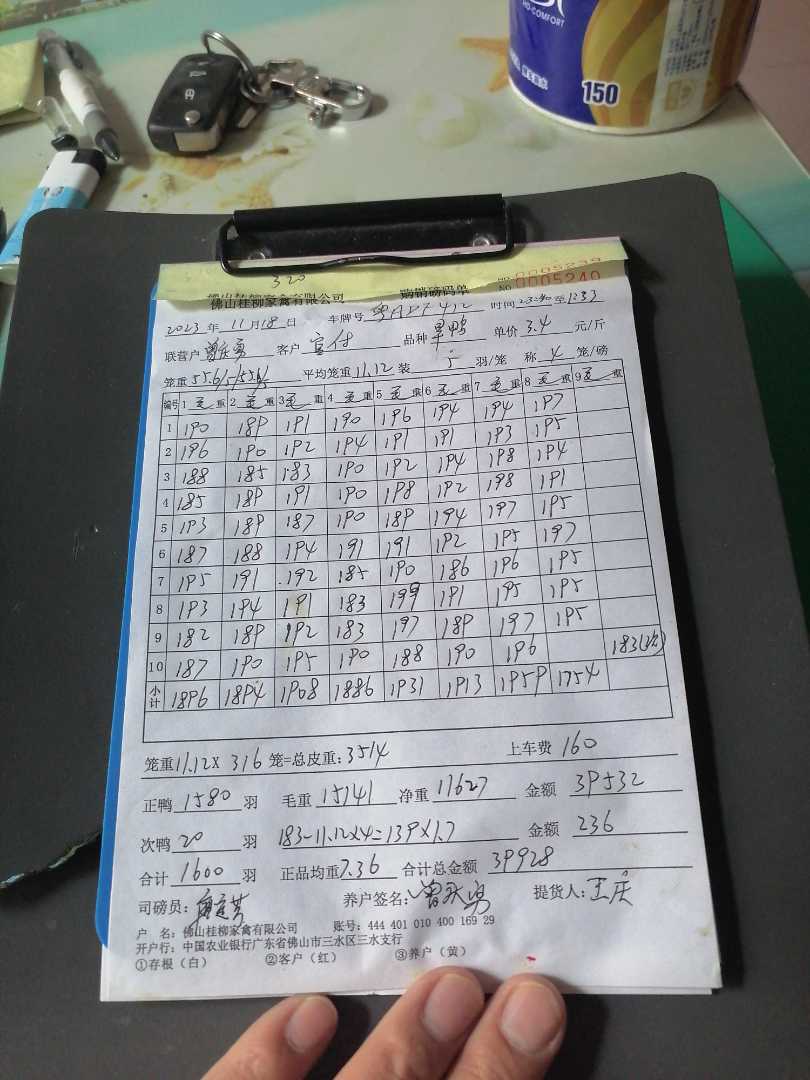 HD-COMFORT
150
320
0005239
佛山桂柳家禽有限公司 购销磅码单 NO 0005240
2023 年 11 月 18 日 车牌号 时间 至 1233
联营户 曾庆勇 客户 宣付 品种 单价 3.4 元/斤
笼重 55.6/5 /55.6/5 平均笼重 11.12 装 5 羽/笼 称 4 笼/磅
编号 1 毛重 2 毛重 3 毛重 4 毛重 5 毛重 6 毛重 7 毛重 8 毛重 9 毛重
1 190 189 191 190 196 194 194 197
2 196 190 192 194 191 191 193 195
3 188 185 183 190 192 194 198 194
4 185 189 191 190 198 192 198 191
5 193 189 187 190 189 194 197 195
6 187 188 194 191 191 192 195 197
7 195 191 192 185 190 186 196 195
8 193 194 191 183 199 191 195 195
9 182 189 192 183 197 189 197 195
10 187 190 195 190 188 190 196 183(次)
小计 1896 1894 1908 1886 1931 1913 1959 1754
笼重 11.12 X 316 笼=总皮重: 3514 上车费 160
正鸭 1580 羽 毛重 15141 净重 11627 金额 39532
次鸭 20 羽 183-11.12X4=139X1.7 金额 236
合计 1600 羽 正品均重 7.36 合计总金额 39928
司磅员: 养户签名: 曾庆勇 提货人: 王庆
户 名: 佛山桂柳家禽有限公司 账号: 444 401 010 400 169 29
开户行: 中国农业银行广东省佛山市三水区三水支行
①存根(白) ②客户(红) ③养户(黄)